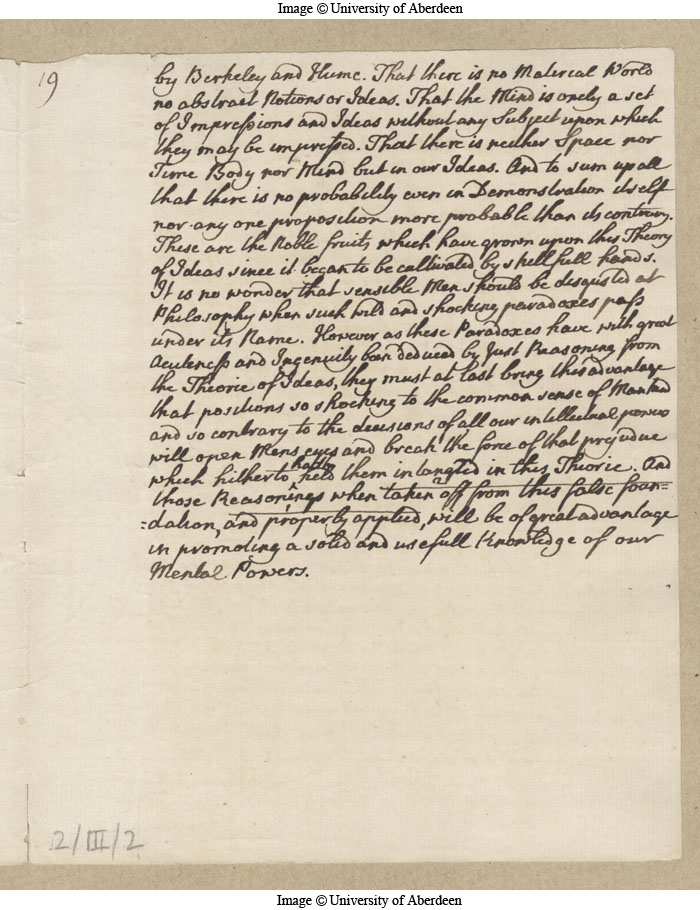 Image © University of Aberdeen
19
by Berkeley and Hume. That there is no Material World
no abstract Notions or Ideas. That the Mind is onely a set
of Impressions and Ideas without any Subject upon which
they may be impressed. That there is neither Space nor
Time Body nor Mind but in our Ideas. And to sum up all
that there is no probability even in Demonstration itself
nor any one proposition more probable than its contrary.
These are the Noble fruits which have grown upon this Theory
of Ideas since it began to be cultivated by skillfull hands.
It is no wonder that sensible Men should be disgusted at
Philosophy when such wild and shocking paradoxes pass
under its Name. However as these Paradoxes have with great
Acuteness and Ingenuity been deduced by Just Reasoning from
the Theorie of Ideas, they must at last bring this advantage
that positions so shocking to the common sense of Mankind
and so contrary to the decisions of all our intellectual powers
will open Mens eyes and break the force of that prejudice
hath
which hitherto held them intangled in this Theorie. And
those Reasonings when taken off from this false foun=
=dation, and properly applied, will be of great advantage
in promoting a solid and usefull Knowledge of our
Mental Powers.
2/III/2
Image © University of Aberdeen